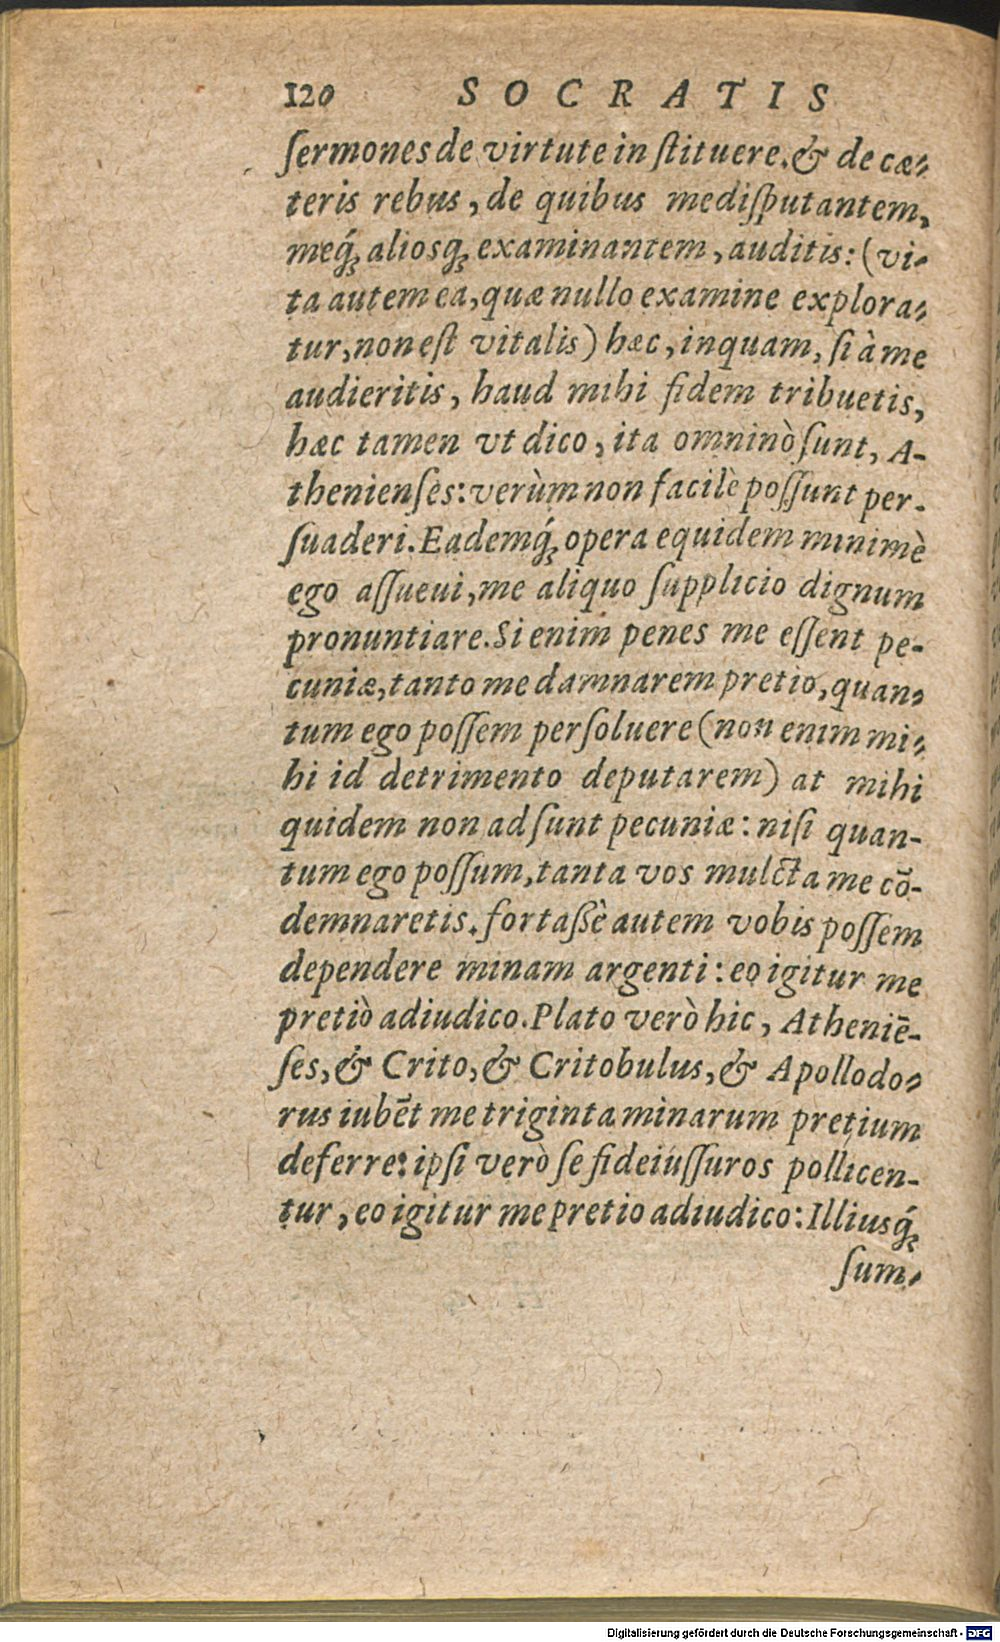 120 SOCRATIS
ſermones de virtute inſtituere. & de cæ-
teris rebus, de quibus me diſputantem,
meq́ꝫ alioſqꝫ examinantem, auditis: (vi-
ta autem ea, quæ nullo examine explora-
tur, non eſt vitalis) hæc, inquam, ſi à me
audieritis, haud mihi fidem tribuetis,
hæc tamen vt dico, ita omninò ſunt, A-
thenienſes: verùm non facilè poſſunt per-
ſuaderi. Eademq́ꝫ opera equidem minimè
ego aſſueui, me aliquo ſupplicio dignum
pronuntiare. Si enim penes me eſſent pe-
cuniæ, tanto me damnarem pretio, quan-
tum ego poſſem perſoluere (non enim mi-
hi id detrimento deputarem) at mihi
quidem non adſunt pecuniæ: niſi quan-
tum ego poſſum, tanta vos mulcta me cō-
demnaretis. fortaſſè autem vobis poſſem
dependere minam argenti: eo igitur me
pretiò adiudico. Plato verò hic, Atheniē-
ſes, & Crito, & Critobulus, & Apollodo-
rus iubēt me triginta minarum pretium
deferre: ipſi verò ſe fideiuſſuros pollicen-
tur, eo igitur me pretio adiudico: Illiusq́ꝫ
ſum-
Digitalisierung gefördert durch die Deutsche Forschungsgemeinschaft - DFG